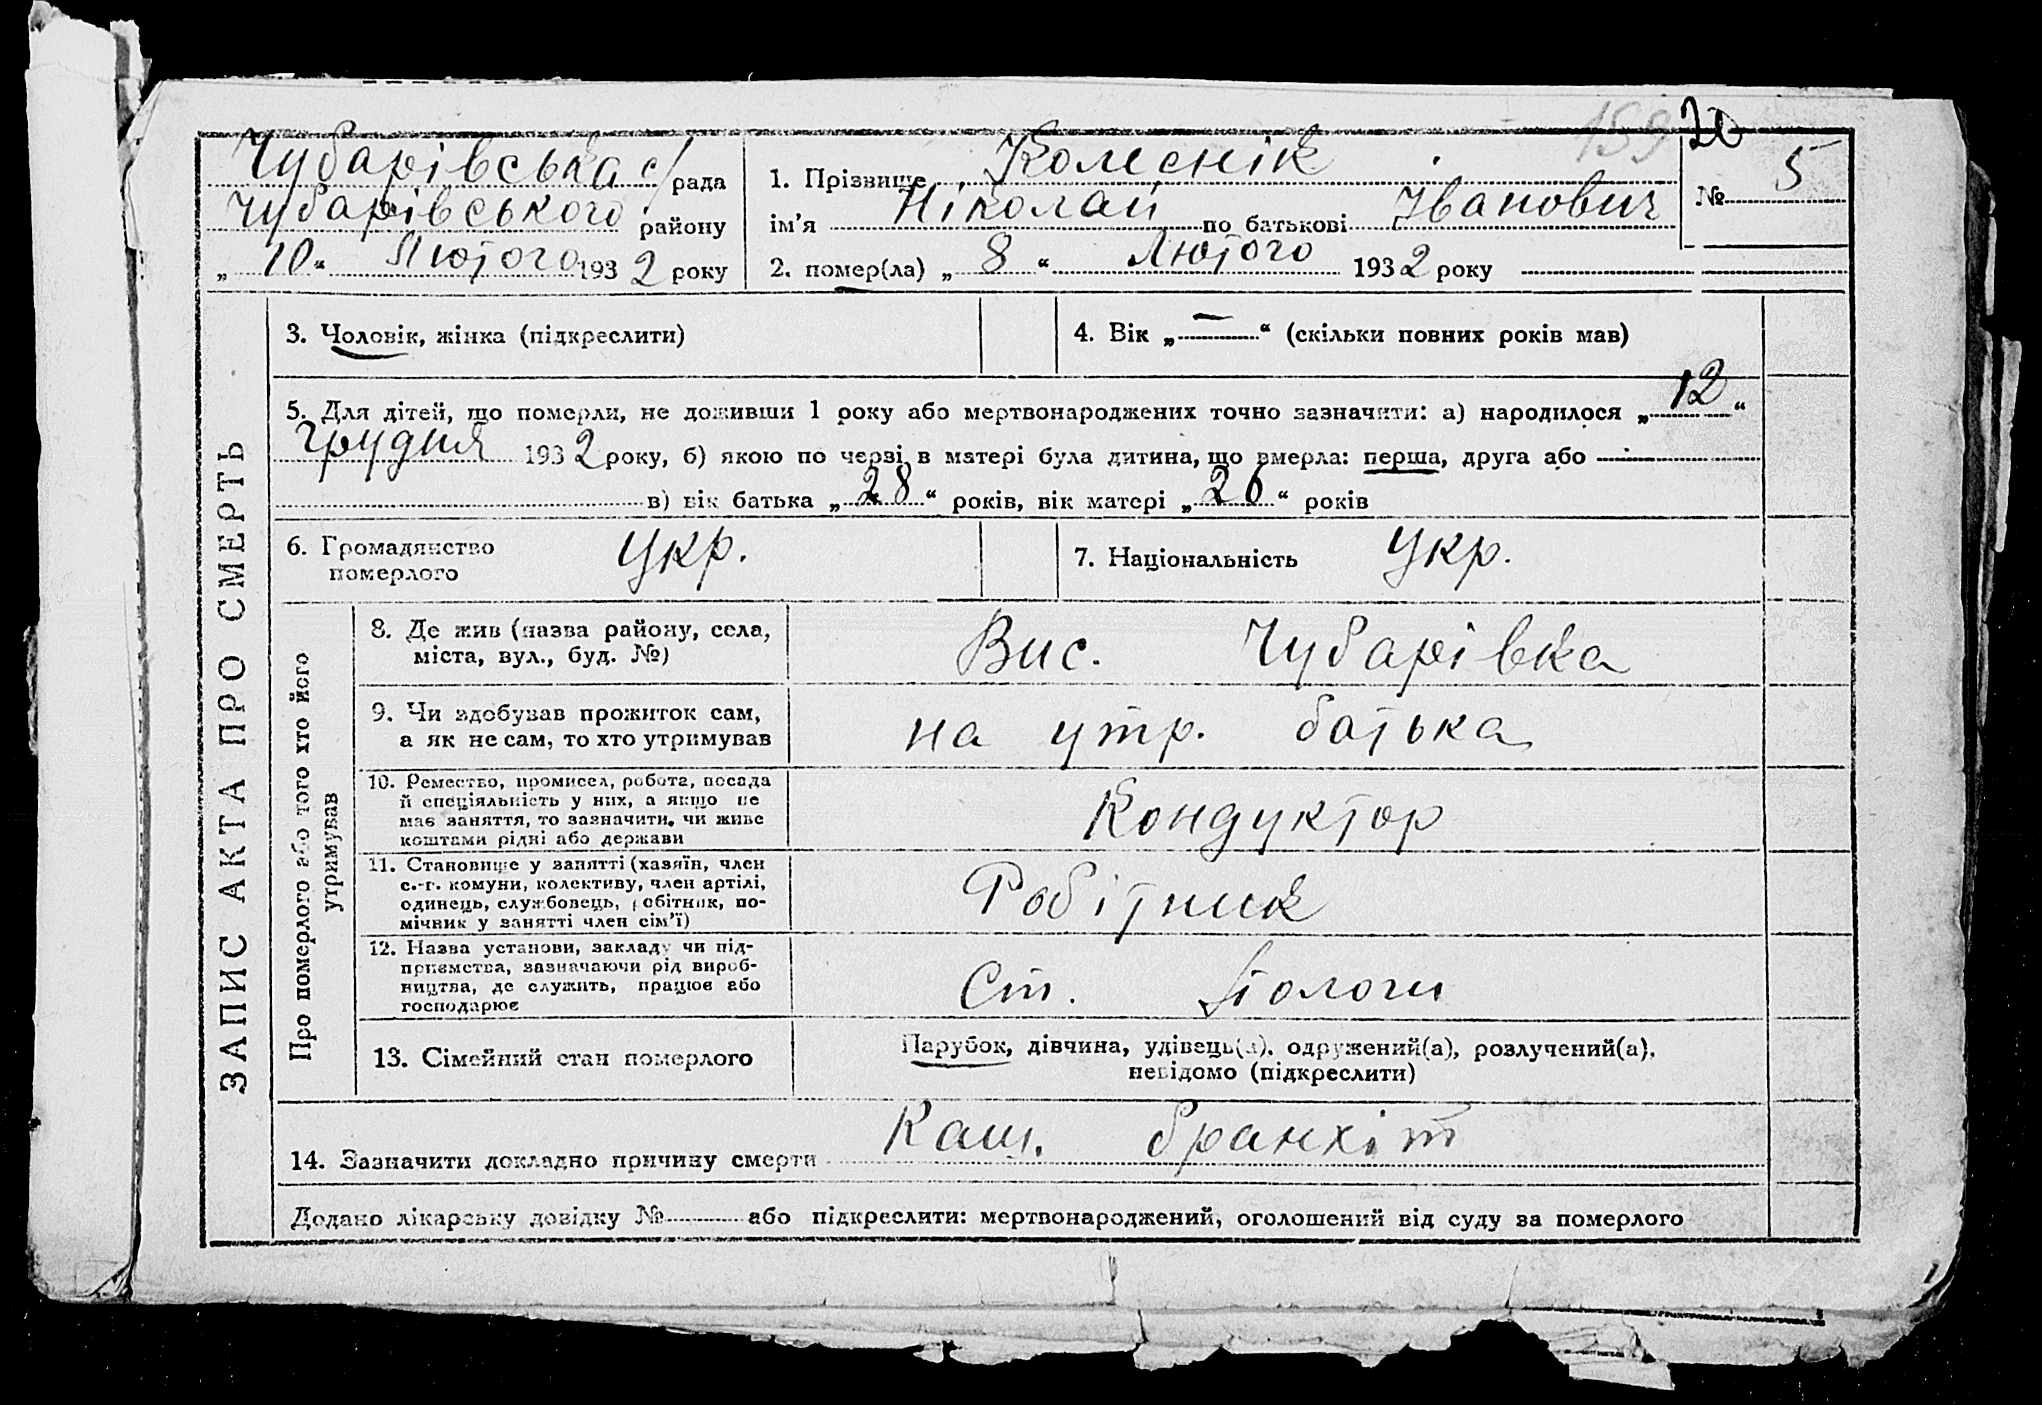 159 20
Чубарівська с/рада
Чубарівського району
„ 10 “ Лютого 1932 року
1. Прізвище Колеснік
ім’я Ніколай по батькові Іванович
2. помер(ла) „ 8 “ Лютого 1932 року
№ 5
ЗАПИС АКТА ПРО СМЕРТЬ
3. Чоловік, жінка (підкреслити)
4. Вік „ — “ (скільки повних років мав)
5. Для дітей, що померли, не доживши 1 року або мертвонароджених точно зазначити: а) народилося „ 12 “
грудня 1932 року, б) якою по черзі в матері була дитина, що вмерла: перша, друга або —
в) вік батька „ 28 “ років, вік матері „ 26 “ років
6. Громадянство
померлого
Укр.
7. Національність Укр.
Про померлого або того хто його
утримував
8. Де жив (назва району, села,
міста, вул., буд. №)
Вис. Чубарівка
9. Чи здобував прожиток сам,
а як не сам, то хто утримував
на утр. батька
10. Ремество, промисел, робота, посада
й спеціяльність у них, а якщо не
має заняття, то зазначити, чи живе
коштами рідні або держави
Кондуктор
11. Становище у занятті (хазяїн, член
с.-г. комуни, колективу, член артілі,
одинець, службовець, робітник, по-
мічник у занятті член сім’ї)
Робітник
12. Назва установи, закладу чи під-
приємства, зазначаючи рід вироб-
ництва, де служить, працює або
господарює
Ст. Пологи
13. Сімейний стан померлого
Парубок, дівчина, удівець(а), одружений(а), розлучений(а),
невідомо (підкреслити)
14. Зазначити докладно причину смерти Каш. бранхіт
Додано лікарську довідку № або підкреслити: мертвонароджений, оголошений від суду за померлого